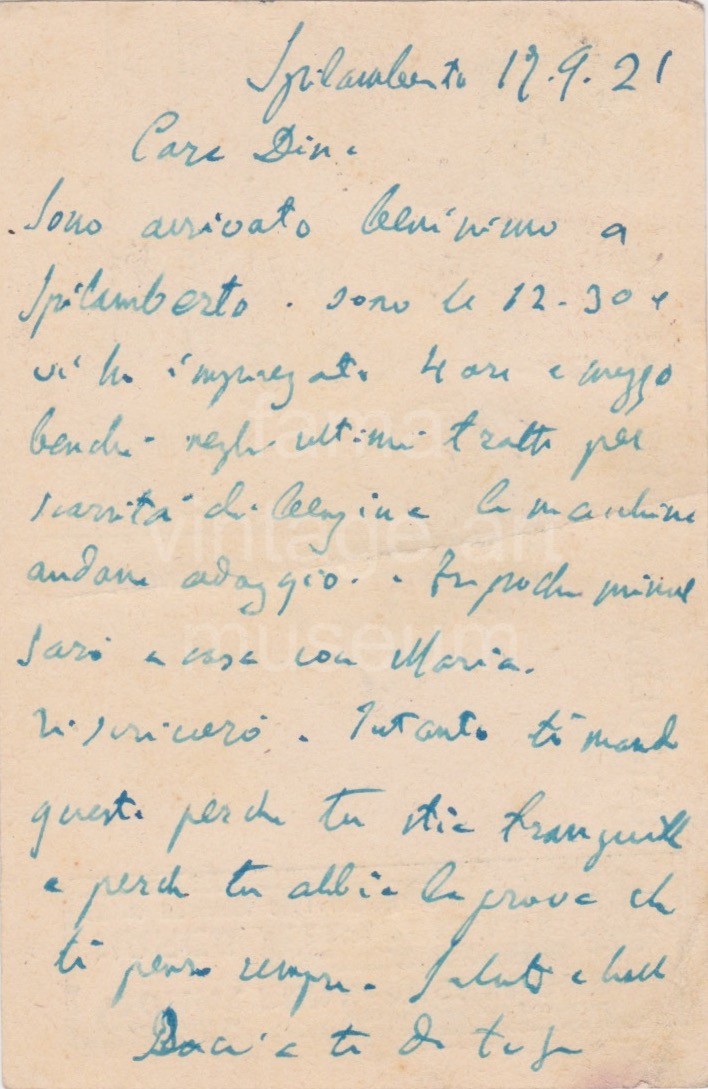 Spilamberto 17.9.21
Cara Dina
Sono arrivato benissimo a
Spilamberto. sono le 12-30 e
vi ho impiegato 4 ore e mezzo
benchè negli ultimi tratti per
scarsità di benzina la macchina
andava adaggio. Fra pochi minuti
sarò a casa con Maria.
Ti scriverò. Intanto ti mando
questa perchè tu stia tranquilla
e perchè tu abbia la prova che
ti penso sempre. Saluti a
fama
vintage art
museum